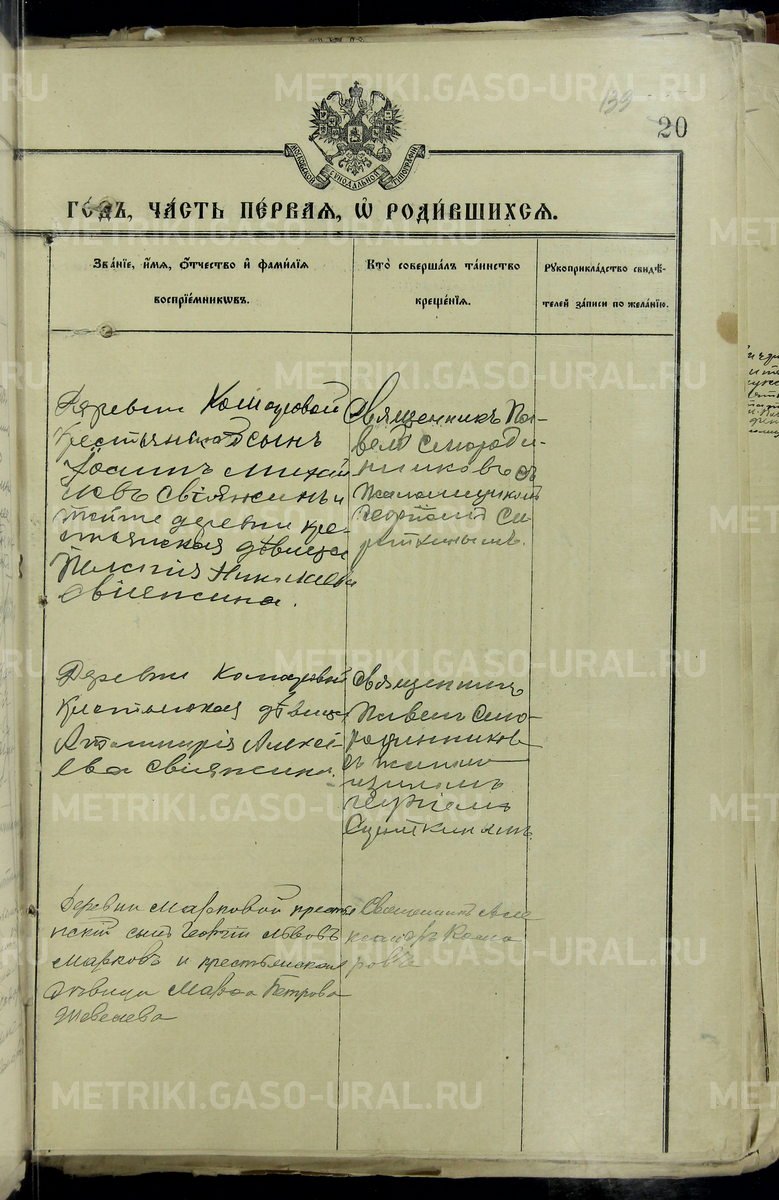 139
20
МОСКОВСКОЙ СѴНОДАЛЬНОЙ ТИПОГРАФІИ
ГО́ДЪ, ЧА́СТЬ ПЕ́РВАЯ, Ѡ РОДИ́ВШИХСЯ.
Зва́нїе, и҆́мя, о҆́тчество и҆ фами́лїя
воспрїе́мникѡвъ.
Кто̀ соверша́лъ та́инство
креще́нїя.
Рꙋкоприкла́дство свидѣ́-
телей за́писи по жела́нїю.
Деревни
крестьянскій сынъ
Іоаннъ Михай
ловъ Свіяжинъ и
тойже деревни кре-
стьянская дѣвица
Пелагія Николаева
Свіяжина.
Священникъ Па-
велъ Смороди-
нниковъ съ
псаломщикомъ
Георгіемъ
Деревни
крестьянская дѣвица
Алексѣ
ева Свіяжина.
Священникъ
Павелъ Смо-
родинниковъ
съ псалом
щикомъ
Георгіемъ
Деревни Марковой кресть
нскій сынъ Георгій Львовъ
Марковъ и крестьянская
дѣвица Марѳа Петрова
Шевелева
Священникъ Але
ксандръ Кома
ровъ
METRIKI.GASO-URAL.RU